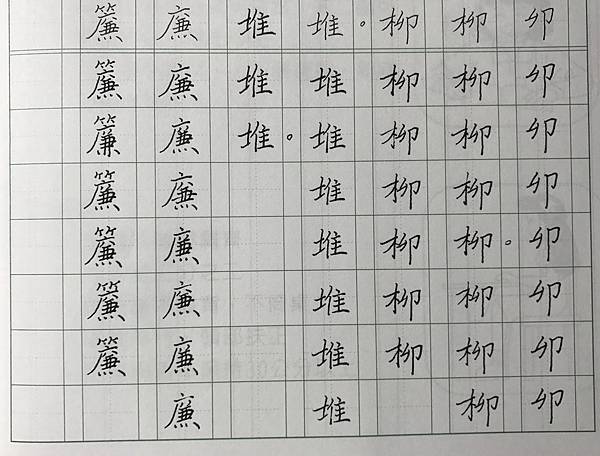 卯卯卯卯卯卯卯卯
柳柳柳柳柳。柳柳柳
柳柳柳柳柳柳柳
堆。堆堆堆堆堆堆堆
堆堆堆。
廉廉廉廉廉廉廉廉
簾簾簾簾簾簾簾